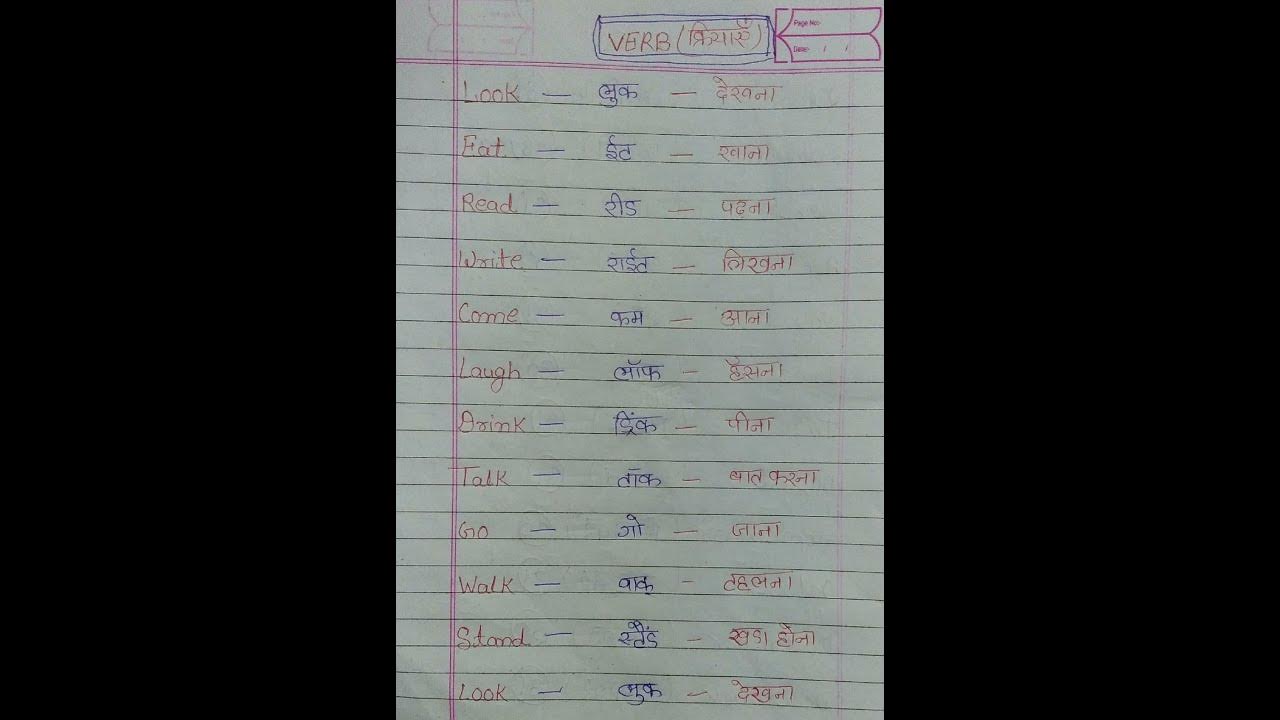 VERB (क्रियाएँ)
Page No:
Date: / /
Look — लुक — देखना
Eat — ईट — खाना
Read — रीड — पढना
Write — राईट — लिखना
Come — कम — आना
Laugh — लॉफ — हँसना
Drink — ड्रिंक — पीना
Talk — टॉक — बात करना
Go — गो — जाना
Walk — वाक — टहलना
Stand — स्टैंड — खडा होना
Look — लुक — देखना